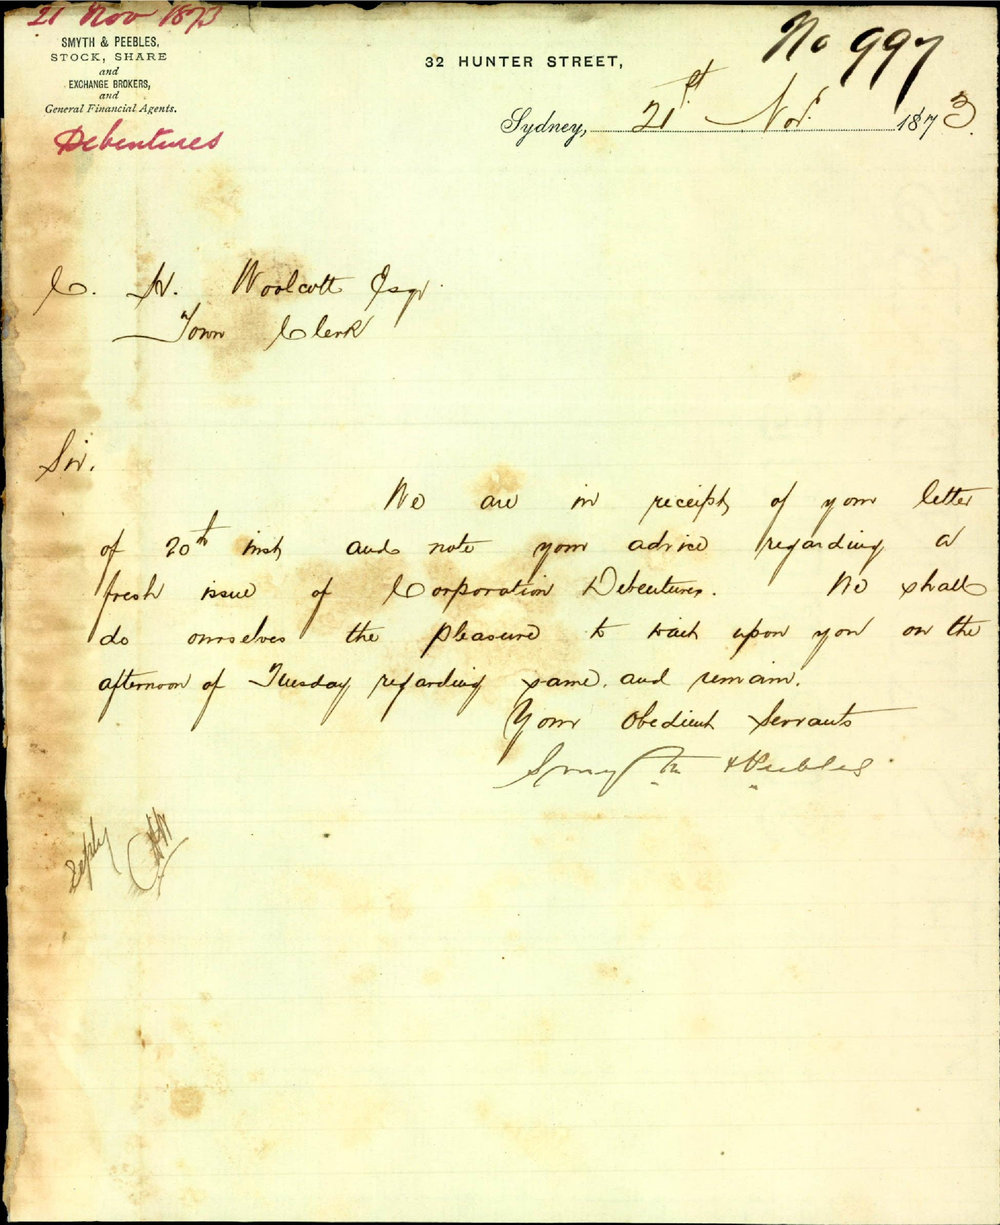 21 Nov 1873
No 997
SMYTH & PEEBLES,
STOCK, SHARE
and
EXCHANGE BROKERS,
and
General Financial Agents.
Debentures
32 HUNTER STREET,
Sydney, 21st Nov. 1873.
C. H. Woolcott Esqr.
Town Clerk
Sir.
We are in receipt of your letter
of 20th inst and note your advice regarding a
fresh issue of Corporation Debentures. We shall
do ourselves the pleasure to wait upon you on the
afternoon of Tuesday regarding same. and remain.
Your Obedient Servants
Smyth & Peebles
reply
CHW